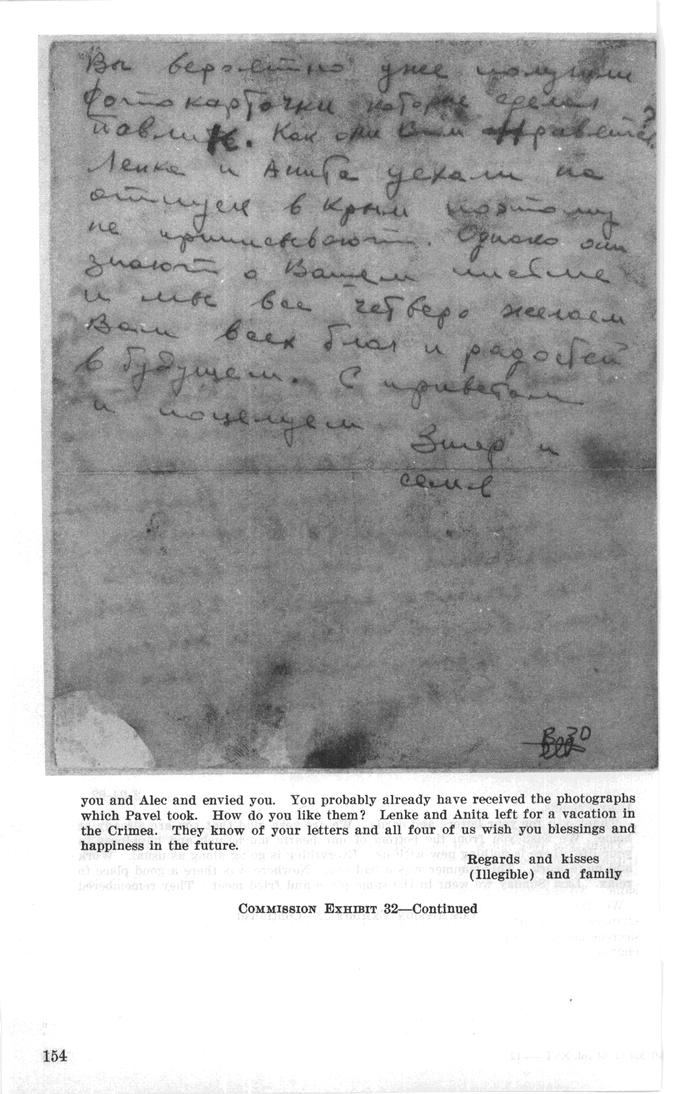 Вы вероятно уже получили
фотокарточки которые сделал
Павлик. Как они Вам нравятся?
Ленка и Анита уехали на
отпуск в Крым поэтому
не приписывают. Однако они
знают о Вашем письме
и мы все четверо желаем
Вам всех благ и радостей
в будущем. С приветом
и поцелуем
и
семья
you and Alec and envied you. You probably already have received the photographs
which Pavel took. How do you like them? Lenke and Anita left for a vacation in
the Crimea. They know of your letters and all four of us wish you blessings and
happiness in the future.
Regards and kisses
(Illegible) and family
COMMISSION EXHIBIT 32—Continued
154